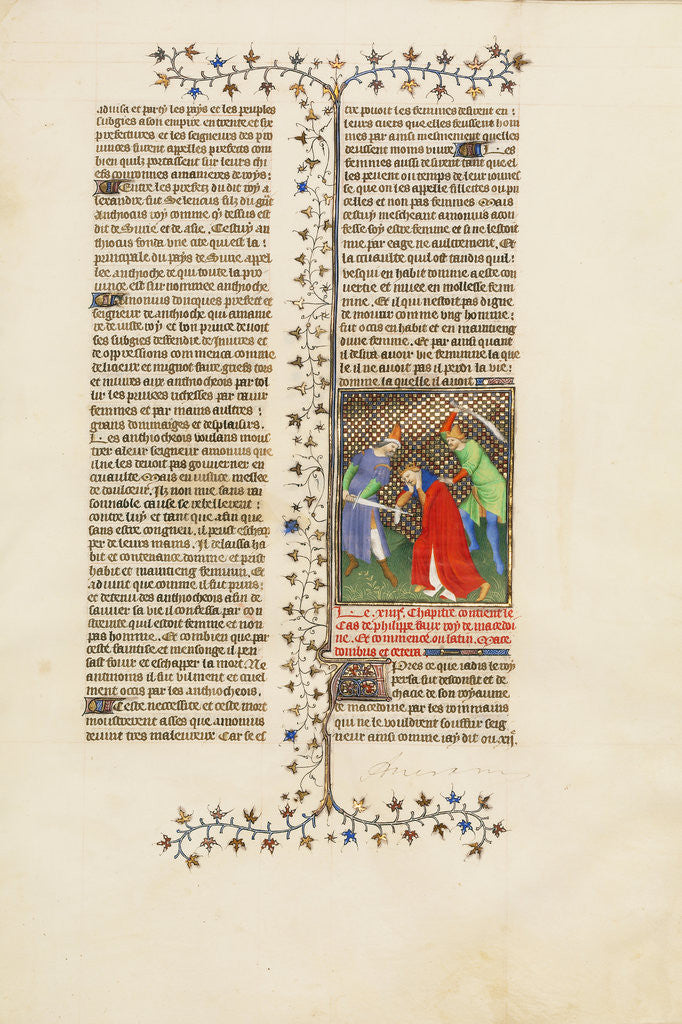 aduisa et party les pays et les peuples
subgies a son empire en trente et six
prefectures et les seigneurs des pro
uinces furent appelles prefects com
bien quilz portassent sur leurs chi
efs couronnes a manieres de roys:
Entre les prefetz du dit roy a
lexandre fut Seleucus filz du gut
Anthiocus roy comme cy dessus est
dit de Surie et de asie. Cestuy an
thiocus fonda une cite qui est la :
principale du pays de Surie appel
lee anthioche de qui toute la pro
uince est surnommee anthioche
Amonius doncques prefect et
seigneur de anthioche qui a manie
re de iuste roy et bon prince deuoit
ses subgies deffendre de iniures et
de oppressions commenca comme
delicieux et mignot faire griefz tors
et iniures aux anthiocheois par tol
lir les priuees richesses par rauir
femmes et par mains aultres :
grans dommaiges et desplaisirs.
Les anthiocheois voulans mous
trer a leur seigneur amonius que
il ne les deuoit pas gouuerner en
cruaulte Mais en iustice meslee
de doulceur. Ilz non mie sans rai
sonnable cause se rebellerent :
contre luy et tant que afin que
sans estre congneu. il peust eschap
per de leurs mains. Il delaissa ha
bit et contenance domme et prist
habit et maintieng feminin. Et
aduint que comme il fut prins:
et detenu des anthiocheois afin de
sauuer sa vie il confessa par con
trainte quil estoit femme et non
pas homme. Et combien que par
ceste faintise et mensonge il pen
sast fouir et eschapper la mort. Ne
antmoins il fut vilment et cruel
ment occis par les anthiocheois.
Ceste necessite et ceste mort
monstrerent asses que amonius
deuint tres maleureux Car se es
tre pouoit les femmes desirent en :
leurs cuers que elles feussent hom
mes par ainsi mesmement quelles
deussent moins viure Les
femmes aussi desirent tant que el
les peuent ou temps de leur iounes
se que on les appelle fillettes ou pu
celles et non pas femmes Mais
cestuy meschant amonius acon
fesse soy estre femme et si ne lestoit
mie par eage ne aultrement. Et
la cruaulte quil ost tandis quil :
vesqui en habit domme a este con
uertie et muee en mollesse femi
nine. Et il qui nestoit pas digne
de mourir comme ung homme:
fut occis en habit et en maintieng
dune femme. Et par ainsi quant
il desira auoir vie feminine la que
le il ne auoit pas il perdi la vie:
domme la quelle il auoit
Le .xiiij. Chapitre contient le
Cas de philippe faux roy de macedoi
ne. Et commence ou latin. Mace
donibus et cetera
Apres ce que iadis le roy
persa fut desconfit et de
chacie de son royaume
de macedoine par les rommains
qui ne le vouldrent souffrir seig
neur ainsi comme iay dit ou .xij.